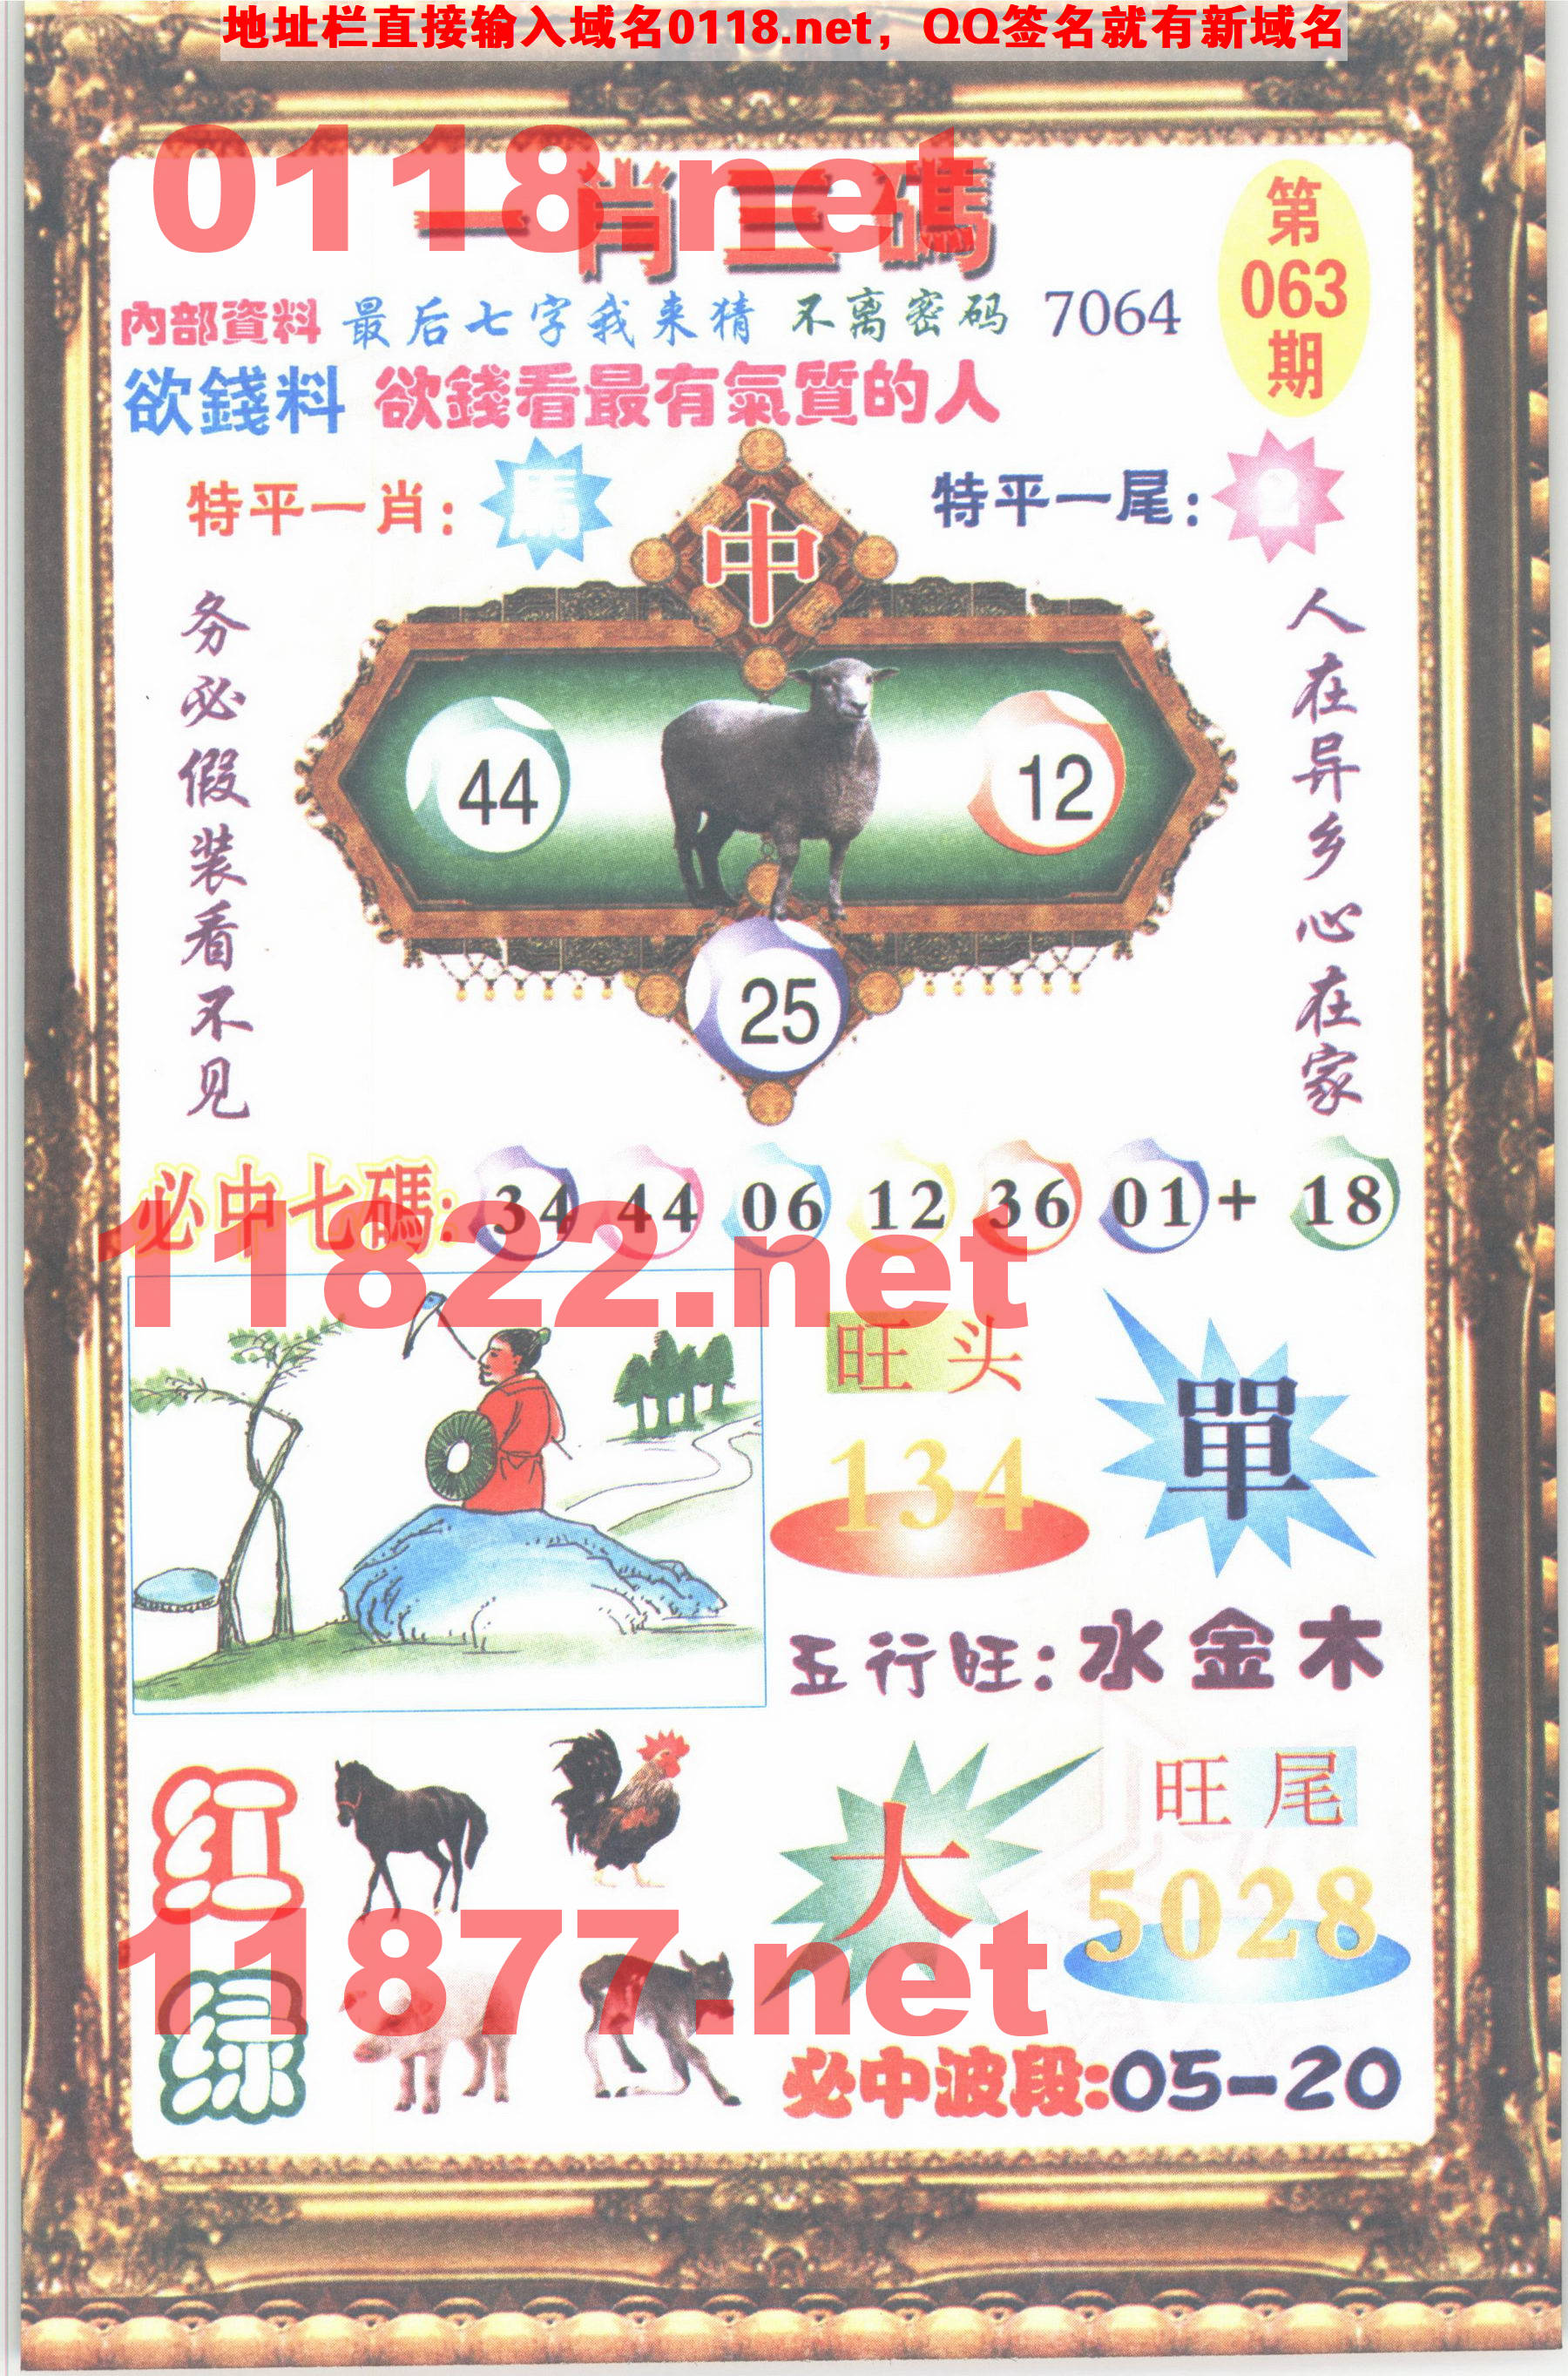 地址栏直接输入域名0118.net，QQ签名就有新域名
0118.net
一肖三碼
第
063
期
內部資料 最后七字我来猜 不离密码 7064
欲錢料 欲錢看最有氣質的人
特平一肖：馬
中
特平一尾：2
务必假装看不见
人在异乡心在家
44
12
25
必中七碼: 34 44 06 12 36 01 + 18
11822.net
旺头
134
單
五行旺：水金木
红
大
旺尾
5028
11877.net
绿
必中波段:05-20